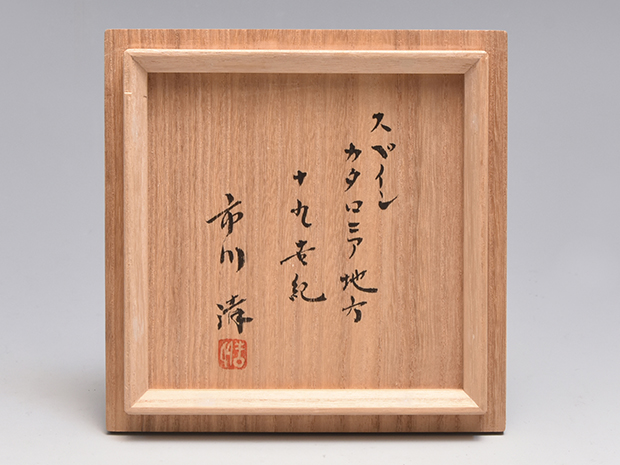 スペイン
カタロニア地方
十九世紀
市川 清